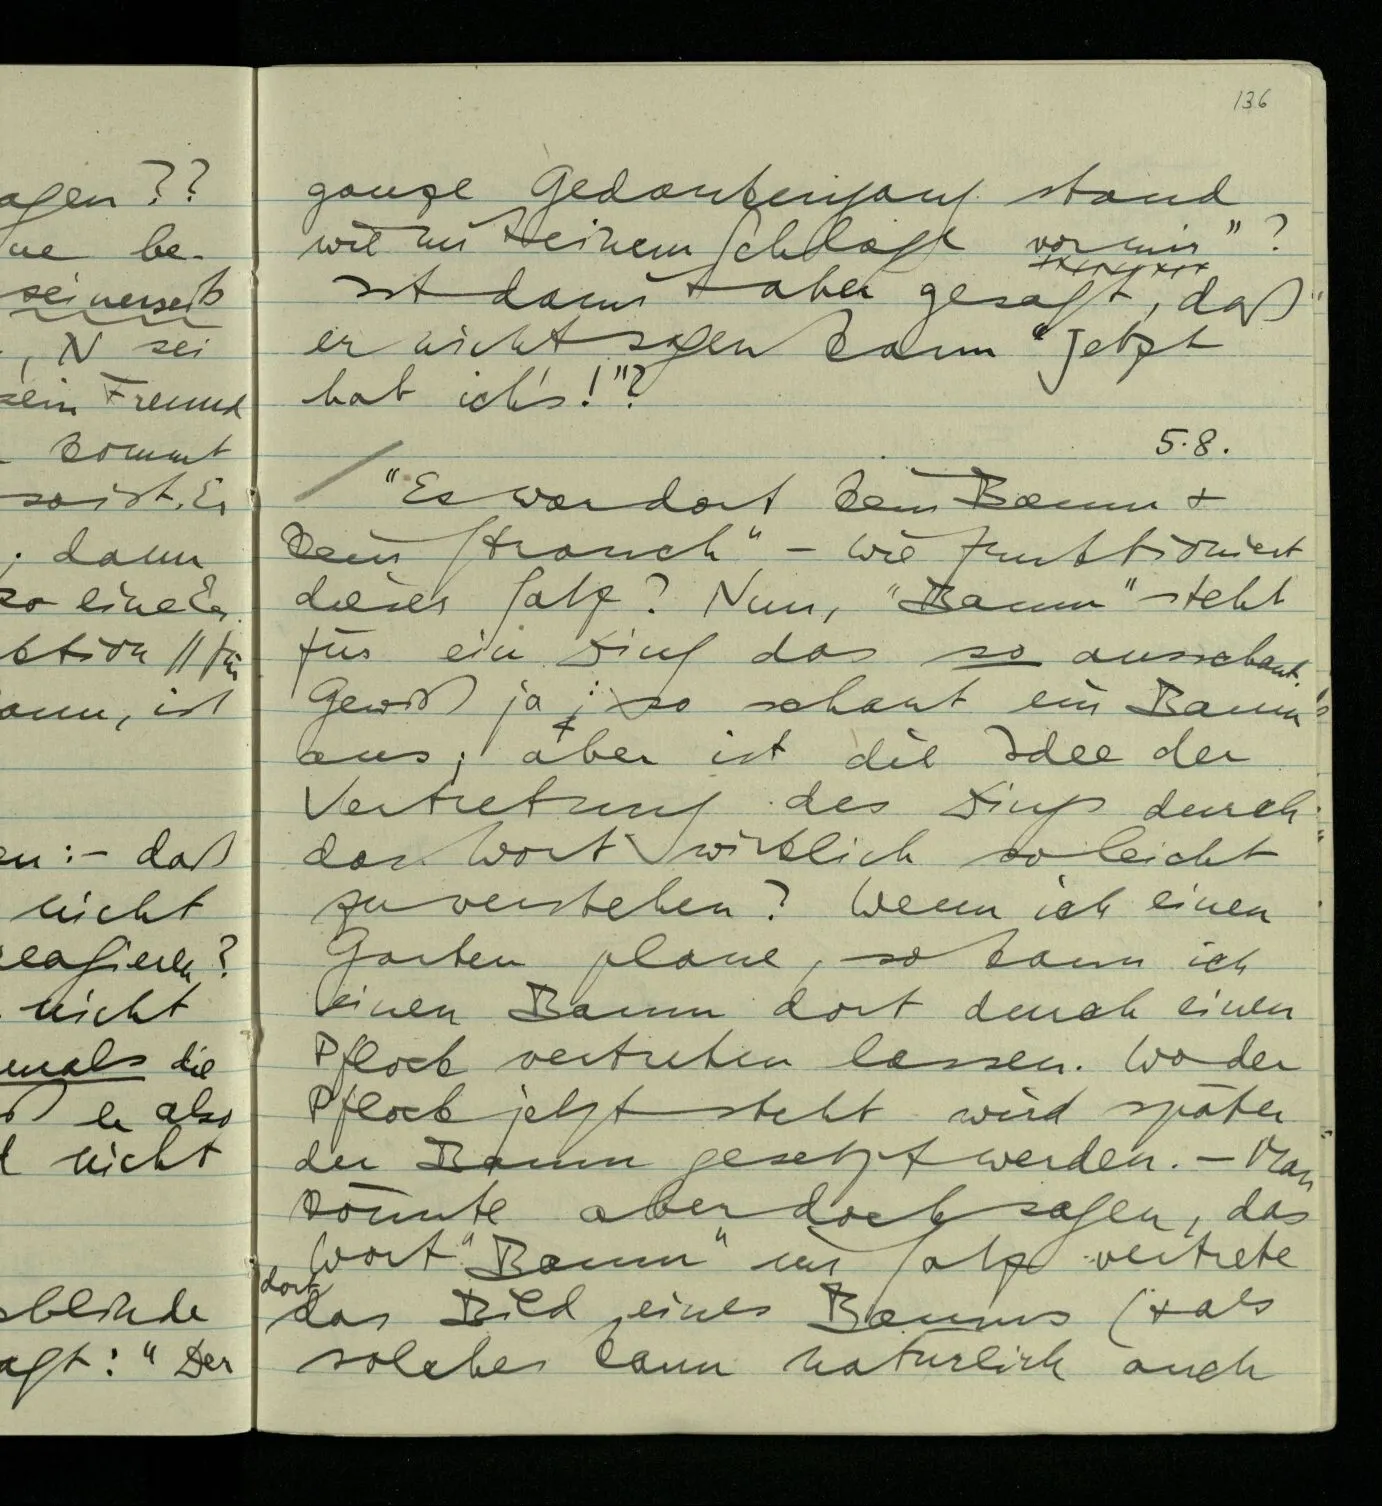 136
agen ??
ganze Gedankengang stand
ne be-
wie mit einem Schlage vor mir" ?
seinerseits
Ist damit aber gesagt, daß
, N sei
er nicht sagen kann "Jetzt
sein Freund
hab ich's!"?
kommt
5.8.
so ist. Er
"Es war dort kein Baum +
; dann
kein Strauch" – wie funktioniert
so eine Er
dieser Satz? Nun, "Baum" steht
ktion // für
für ein Ding das so ausschaut.
ann, ist
Gewiß ja; so schaut ein Baum
aus; aber ist die Idee der
Vertretung des Dings durch
en: – daß
das Wort wirklich so leicht
nicht
zu verstehen? Wenn ich einen
reagieren?
Garten plane, so kann ich
nicht
einen Baum dort durch einen
emals die
Pflock vertreten lassen. Wo der
ß er also
Pflock jetzt steht wird später
nicht
der Baum gesetzt werden. – Man
könnte aber doch sagen, das
Wort "Baum" im Satz vertrete
dort
sblinde
das Bild eines Baums (+ als
agt: "Der
solches kann natürlich auch